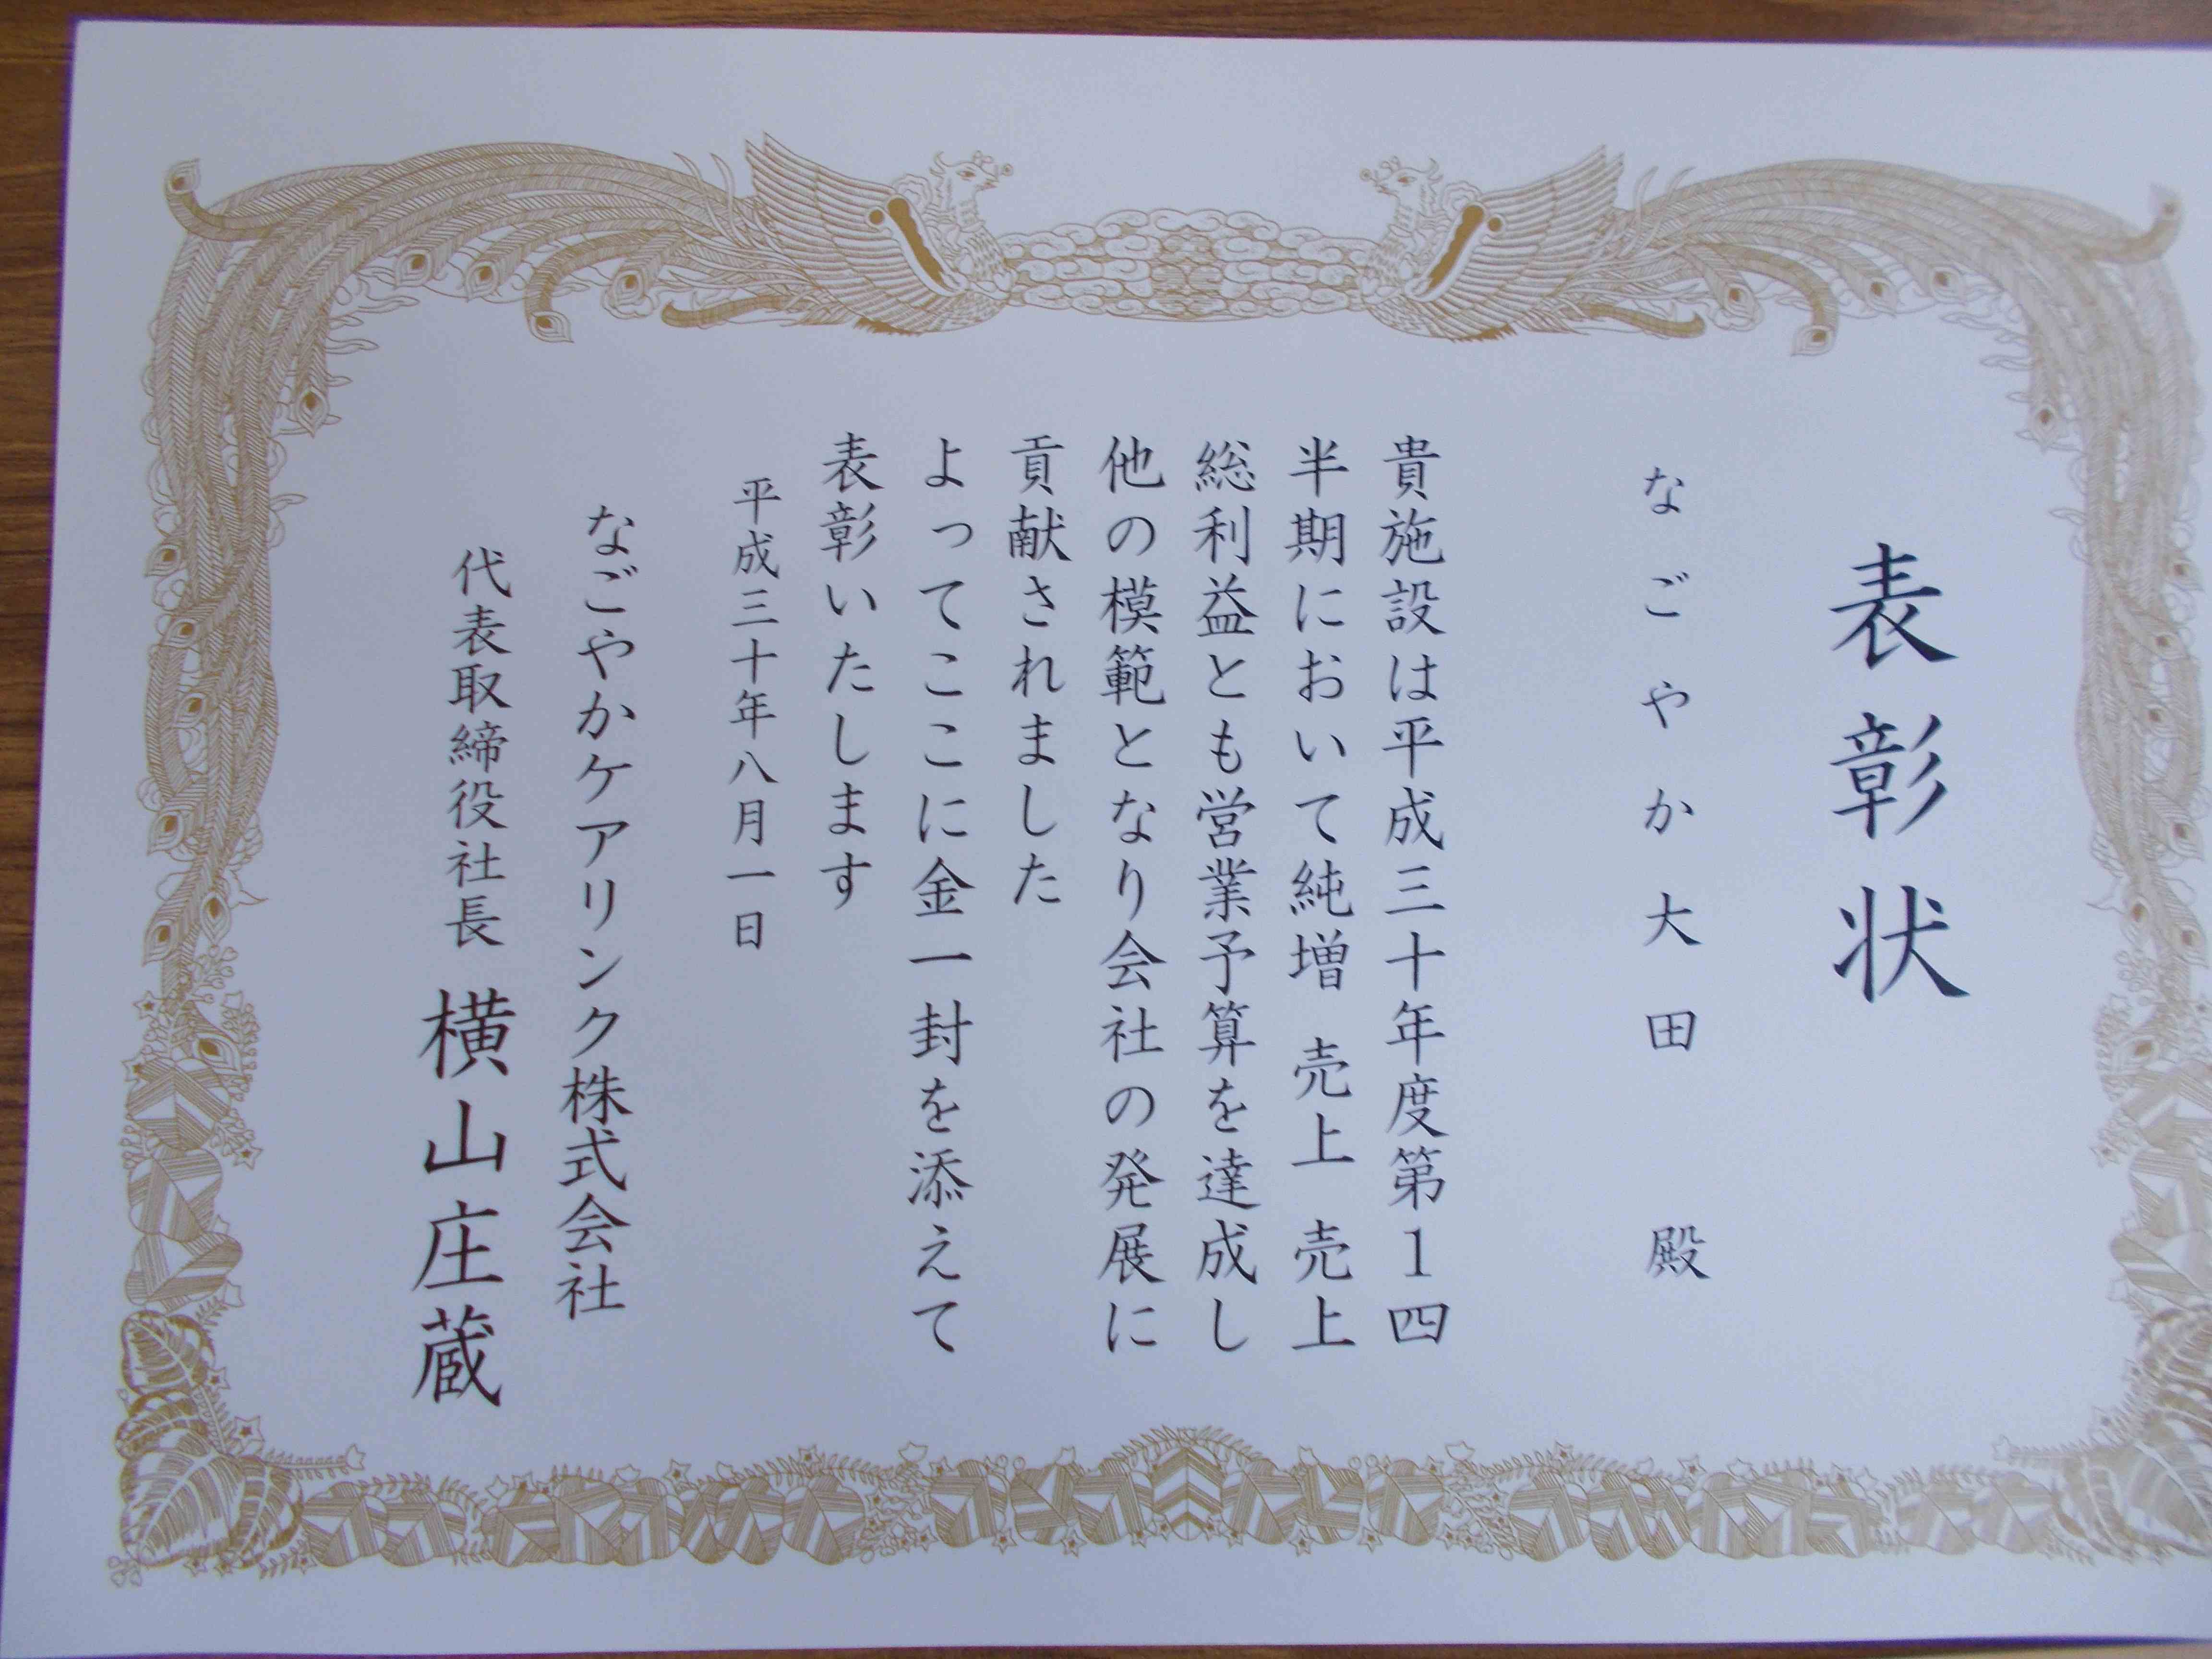 表彰状
なごやか大田　殿
貴施設は平成三十年度第1四
半期において純増　売上　売上
総利益とも営業予算を達成し
他の模範となり会社の発展に
貢献されました
よってここに金一封を添えて
表彰いたします
平成三十年八月一日
なごやかケアリンク株式会社
代表取締役社長　横山庄蔵